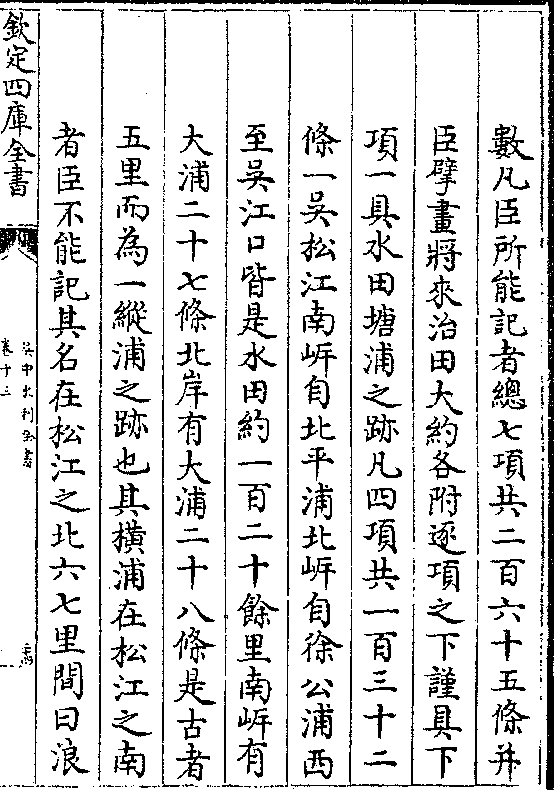 數凡臣所能記者總七項共二百六十五條并
臣擘畫將來治田大約各附逐項之下謹具下
項一具水田塘浦之跡凡四項共一百三十二
條一吳松江南岍自北平浦北岍自徐公浦西
至吳江口皆是水田約一百二十餘里南岍有
大浦二十七條北岸有大浦二十八條是古者
五里而為一縱浦之跡也其橫浦在松江之南
者臣不能記其名在松江之北六七里間曰浪
欽定四庫全書
吳中水利全書
卷十三